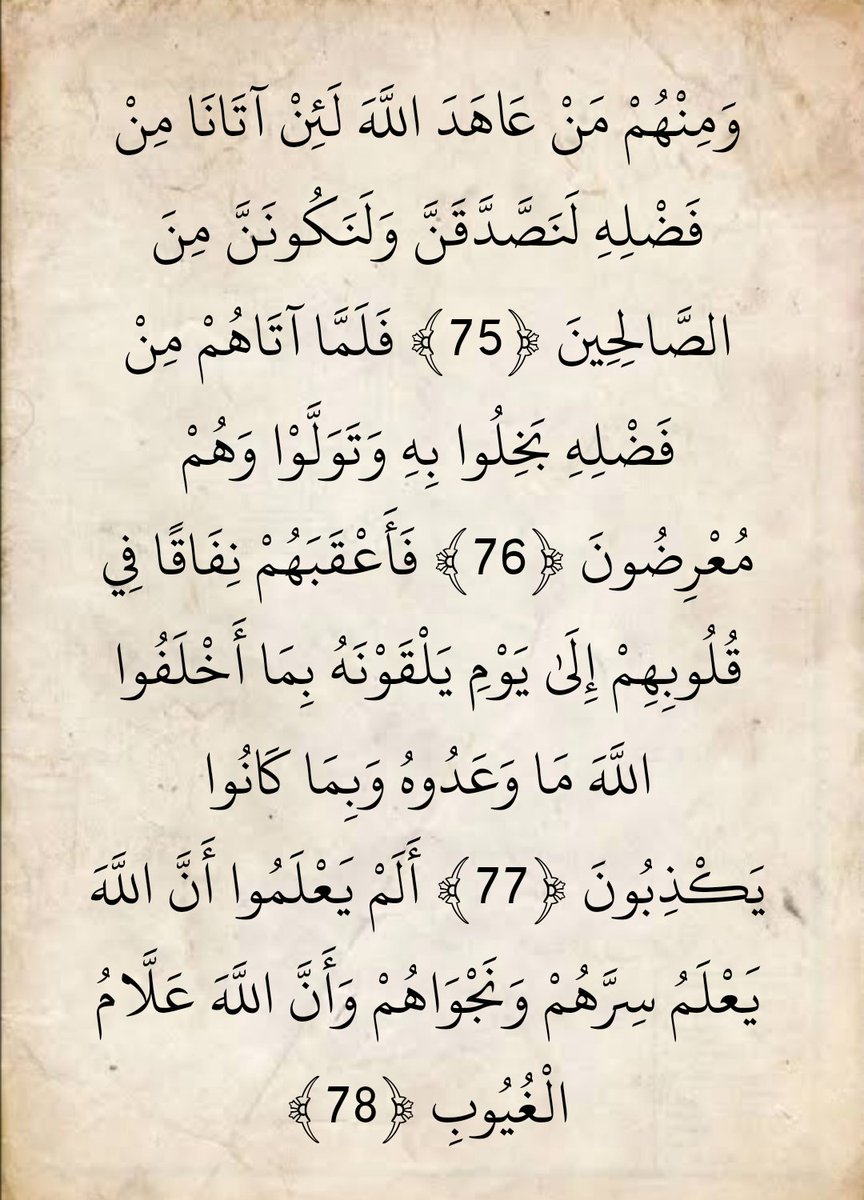 وَمِنْهُمْ مَنْ عَاهَدَ اللَّهَ لَئِنْ آتَانَا مِنْ
فَضْلِهِ لَنَصَّدَّقَنَّ وَلَنَكُونَنَّ مِنَ
الصَّالِحِينَ ﴿75﴾ فَلَمَّا آتَاهُمْ مِنْ
فَضْلِهِ بَخِلُوا بِهِ وَتَوَلَّوْا وَهُمْ
مُعْرِضُونَ ﴿76﴾ فَأَعْقَبَهُمْ نِفَاقًا فِي
قُلُوبِهِمْ إِلَىٰ يَوْمِ يَلْقَوْنَهُ بِمَا أَخْلَفُوا
اللَّهَ مَا وَعَدُوهُ وَبِمَا كَانُوا
يَكْذِبُونَ ﴿77﴾ أَلَمْ يَعْلَمُوا أَنَّ اللَّهَ
يَعْلَمُ سِرَّهُمْ وَنَجْوَاهُمْ وَأَنَّ اللَّهَ عَلَّامُ
الْغُيُوبِ ﴿78﴾